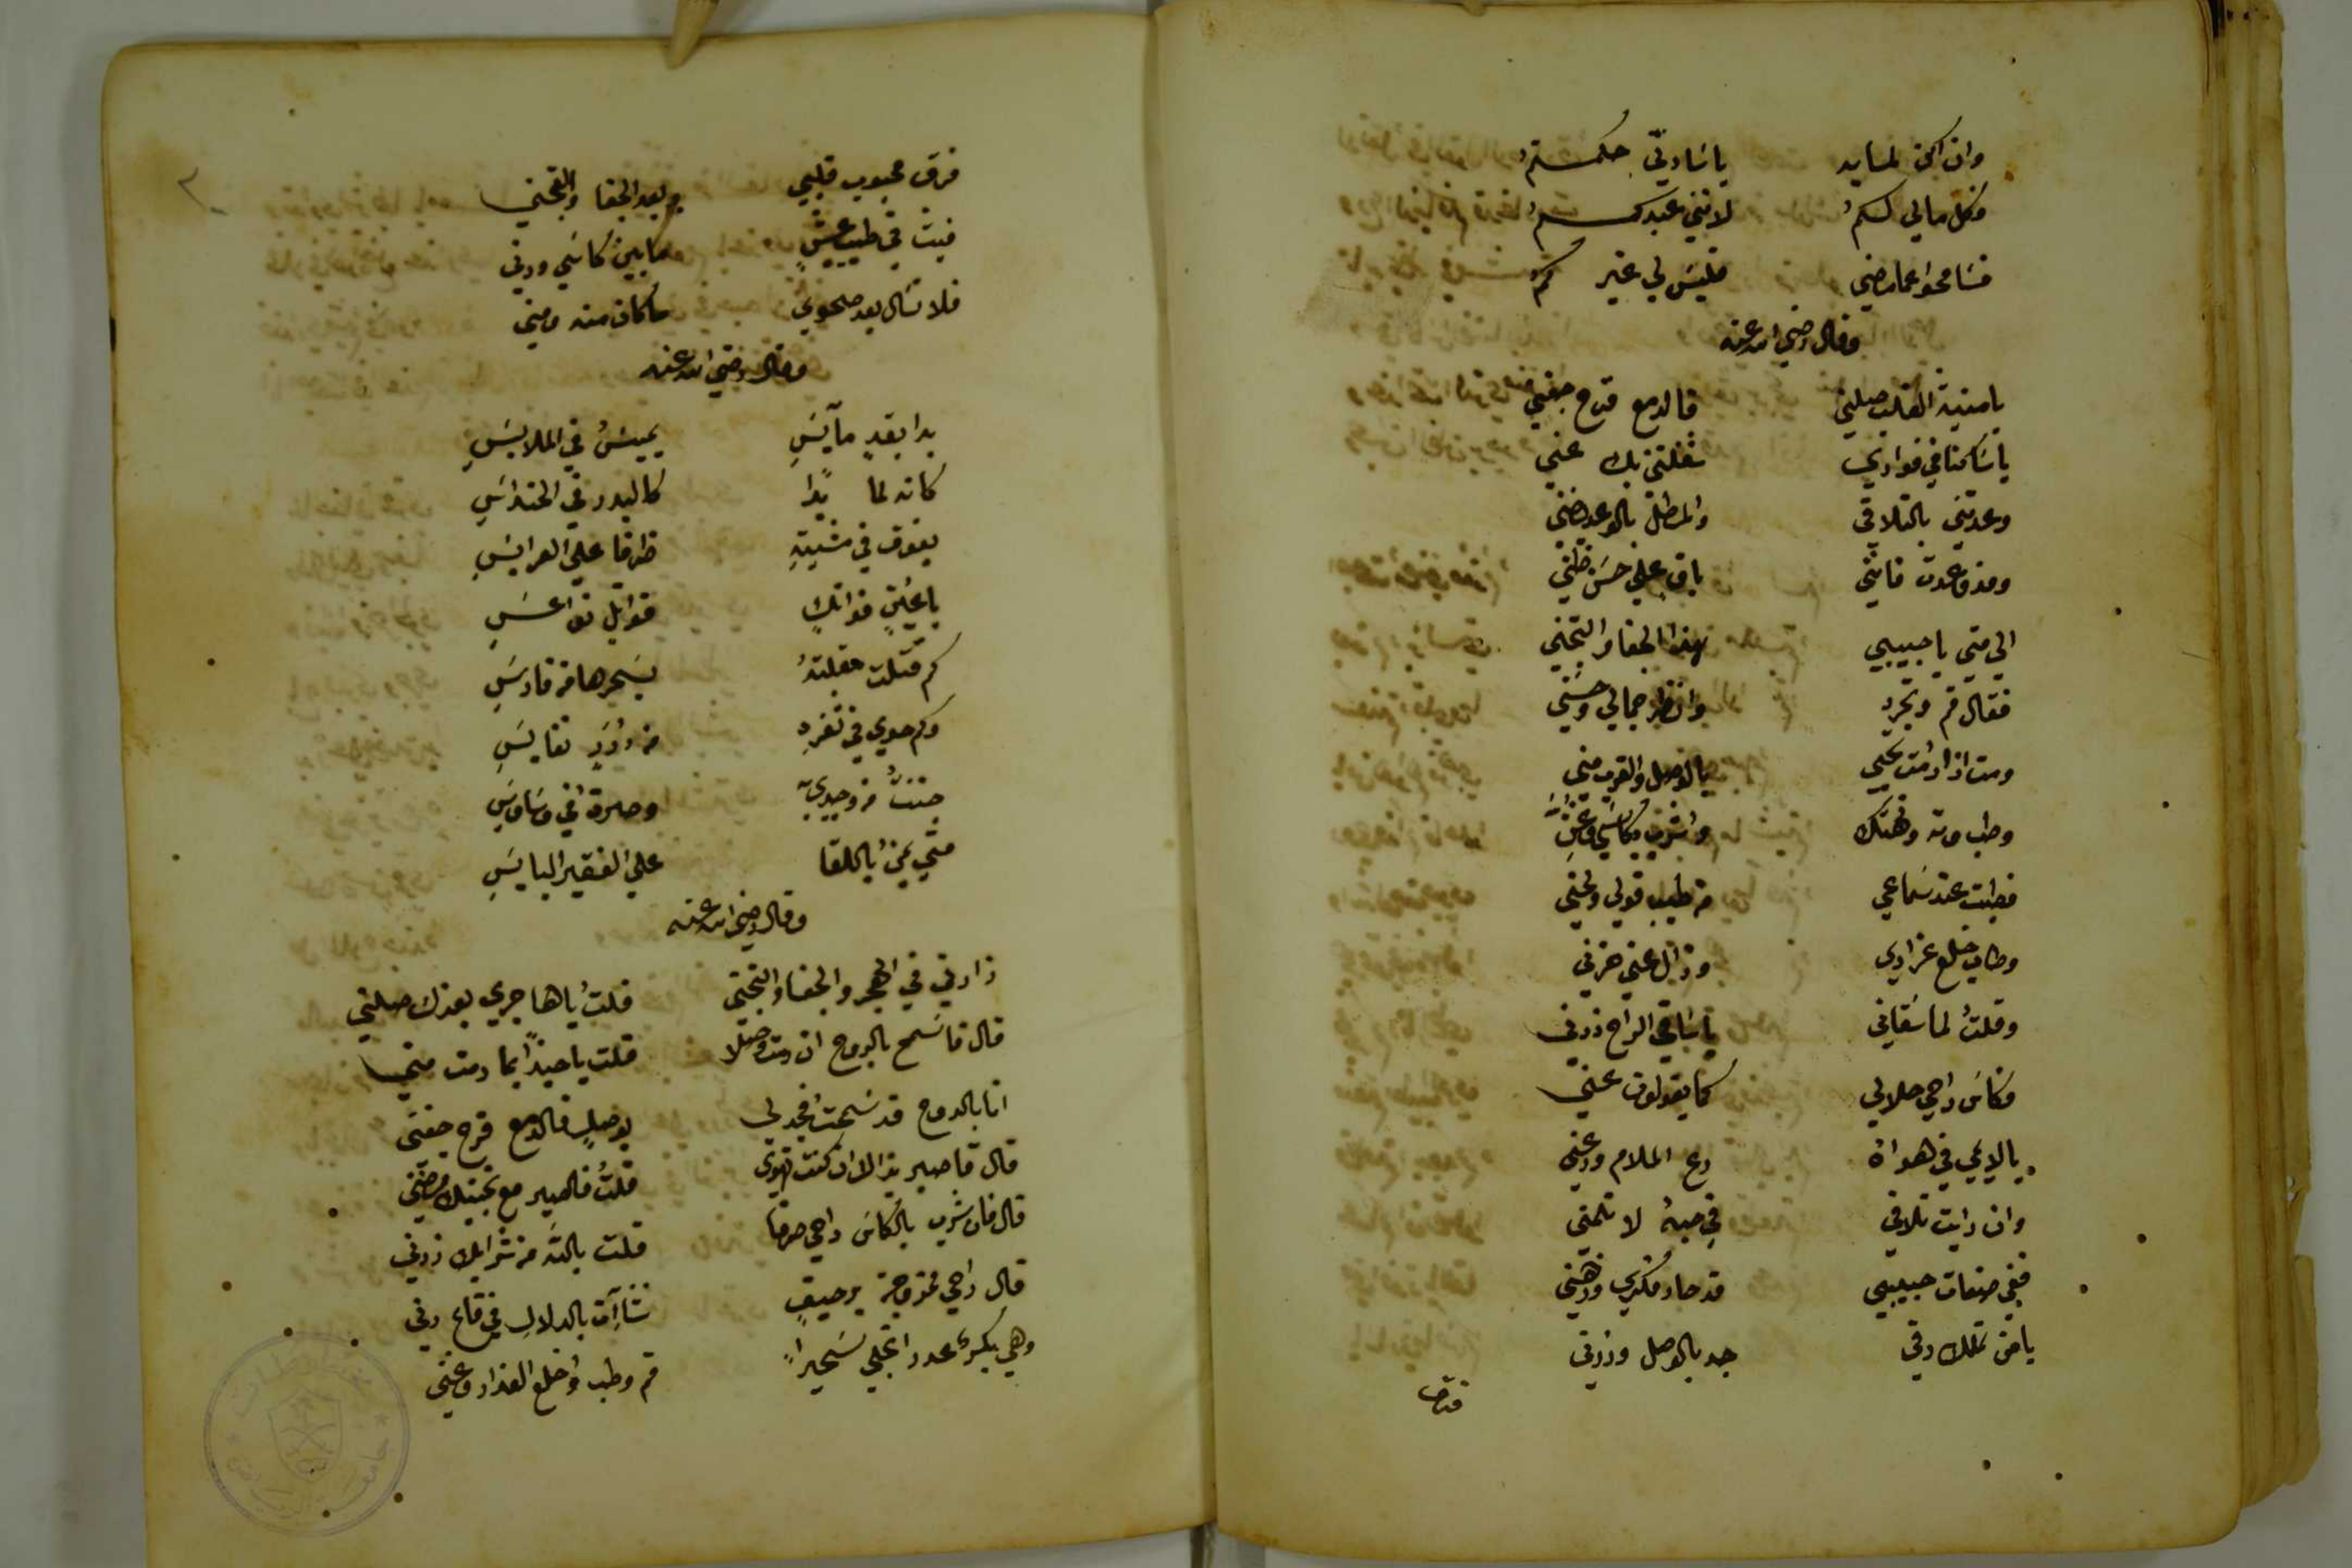 وان اكن لمسايد يا سادتي حكمتم
فكل مالي لكم لانني عبدكم
فسامحوا عما مضي فليس لي غيركم
وقال رضي الله عنه
يا منية القلب صلني فالدمع قرح جفني
يا ساكنا في فوادي شغلتني بك عني
وعدتني بالتلاقي والمطل بالوعد يضني
ومذ وعدت فاني باق علي حسن ظني
الي متي يا حبيبي هذا الجفا والتجني
فقال قم وتجرد وانظر جمالي وحسني
ومت اذا رمت تحيي بالوصل والقرب مني
وطب وته وتهتك واشرب بكاسي وغن
فطبت عند سماعي من طيب قولي ولحني
وطاب خلع عذاري وزال عني حزني
وقلت لما سقاني يا ساقي الراح زدني
فكاس راحي حلالي كما يقولون عني
يا لايمي في هواه دع الملام ودعني
وان رايت تلافي في حبه لا تلمني
ففي صفات حبيبي قد حار فكري وذهني
يا من تملك رقي جد بالوصل وزرني
فرق محبوب قلبي وبعد الجفا والتجني
فبت في طيب عيش ما بين كاسي ودني
فلا تسال بعد صحوي ما كان منه ومني
وقال رضي الله عنه
بدا بقد مآيس يميس في الملابس
كانه لما بدا كالبدر في الحنداس
يفوق في مشيته ظرفا علي العرايس
باعين فواتك قواتل نواعس
كم قتلت مقلته بسحرها من فارس
وكم حوي في ثغره من درر نفايس
جننت من وجدي به وصرت في وساوس
متي يمن باللقا علي الفقير البايس
وقال رضي الله عنه
زادني في الهجر والجفا والتجني قلت يا هاجري بعزك صلني
قال فاسمح بالروح ان رمت وصلا قلت يا حبذا بما رمت مني
انا بالروح قد سمحت فجد لي بوصل فالدمع قرح جفني
قال فاصبر بذا لان كنت تهوي قلت فالصبر مع تجنيك يضني
قال فاشرب بالكاس راحي صرفا قلت بالله من شرابك زدني
قال راحي ممزوجة برحيق نشأت بالدلال في قاع دني
وهي بكر عذرا تجلي سحيرا قم وطب واخلع العذار وغني